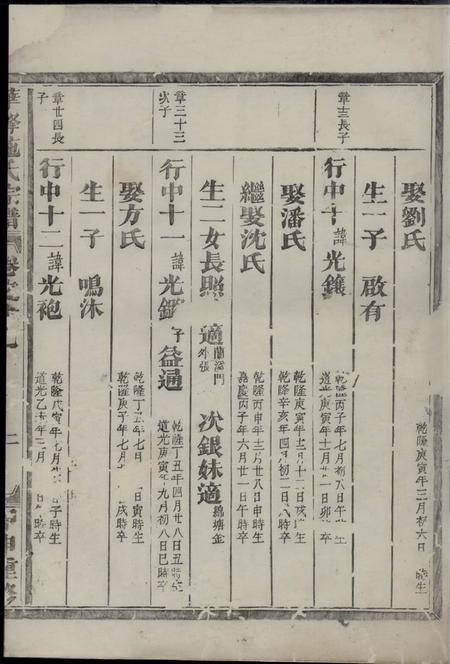 娶劉氏 乾隆庚寅年三月初六日 時生
生一子 啟有
章士長子
行中十 諱光鑲 乾隆丙子年七月初八日午 生 道光庚寅年十二月廿一日卯 卒
娶潘氏 乾隆庚寅年十二月十二日戌 生 乾隆辛亥年四月初二日 時卒
繼娶沈氏 乾隆丙申年三月廿八日申時生 嘉慶丙子年六月廿一日午時卒
生二女長照 適蘭溪門外張 次銀妹適 塘金
章三十三次子
行中十一 諱光鑼 字益通 乾隆丁丑年四月廿八日丑時生 道光庚寅年九月初八日巳時卒
娶方氏 乾隆丁丑年七月 日寅時生 乾隆庚子年七月 戌時卒
生一子 鳴沐
章廿四長子
行中十二 諱光袍 乾隆戊寅年七月 日子時生 道光乙 年三月 日 時卒
氏宗譜 卷 二 重修